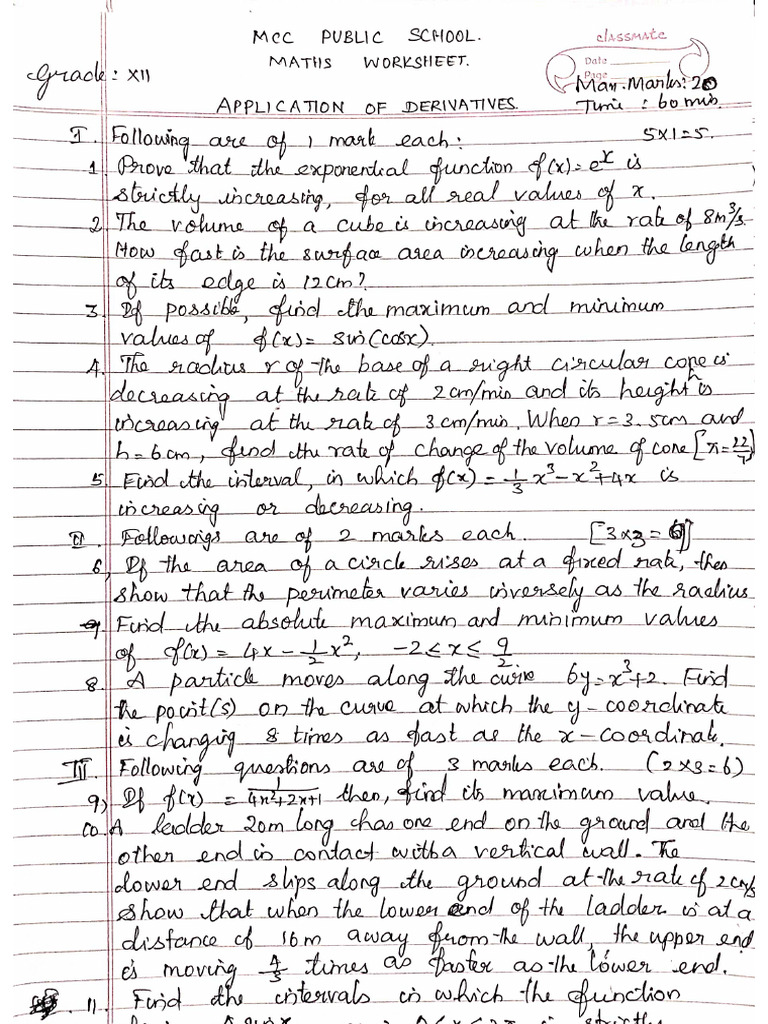 MCC PUBLIC SCHOOL.
classmate
MATHS WORKSHEET.
Date
Page
Grade: XII
Max. Marks: 20
APPLICATION OF DERIVATIVES.
Time : 60 min.
I. Following are of 1 mark each: 5x1=5.
1. Prove that the exponential function f(x)=e^x is
strictly increasing, for all real values of x.
2. The volume of a cube is increasing at the rate of 8m³/s.
How fast is the surface area increasing when the length
of its edge is 12cm?
3. If possible, find the maximum and minimum
values of f(x)= sin(cosx).
4. The radius r of the base of a right circular cone is
decreasing at the rate of 2cm/min and its height h is
increasing at the rate of 3cm/min. When r=3.5cm and
h=6cm, find the rate of change of the volume of cone [π=22/7]
5. Find the interval, in which f(x) = 1/3 x³-x²+4x is
increasing or decreasing.
II. Followings are of 2 marks each. [3x2=6]
6, If the area of a circle rises at a fixed rate, then
show that the perimeter varies inversely as the radius
7. Find the absolute maximum and minimum values
of f(x) = 4x - 1/2 x², -2 ≤ x ≤ 9/2
8. A particle moves along the curve 6y=x³+2. Find
the point(s) on the curve at which the y-coordinate
is changing 8 times as fast as the x-coordinate.
III. Following questions are of 3 marks each. (2x3=6)
9, If f(x) = 1/4x²+2x+1 then, find its maximum value.
10. A ladder 20m long has one end on the ground and the
other end in contact with a vertical wall. The
lower end slips along the ground at the rate of 2cm/s
Show that when the lower end of the ladder is at a
distance of 16m away from the wall, the upper end
is moving 4/3 times as faster as the lower end.
11. Find the intervals in which the function